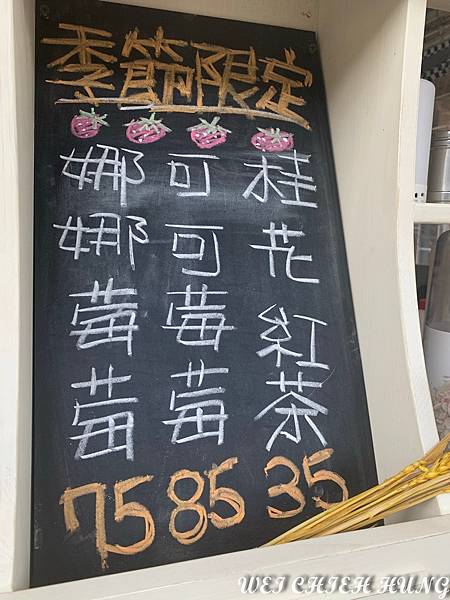 季節限定
桂花紅茶
35
可可莓莓
85
娜娜莓莓
75
WEI CHIEH HUNG